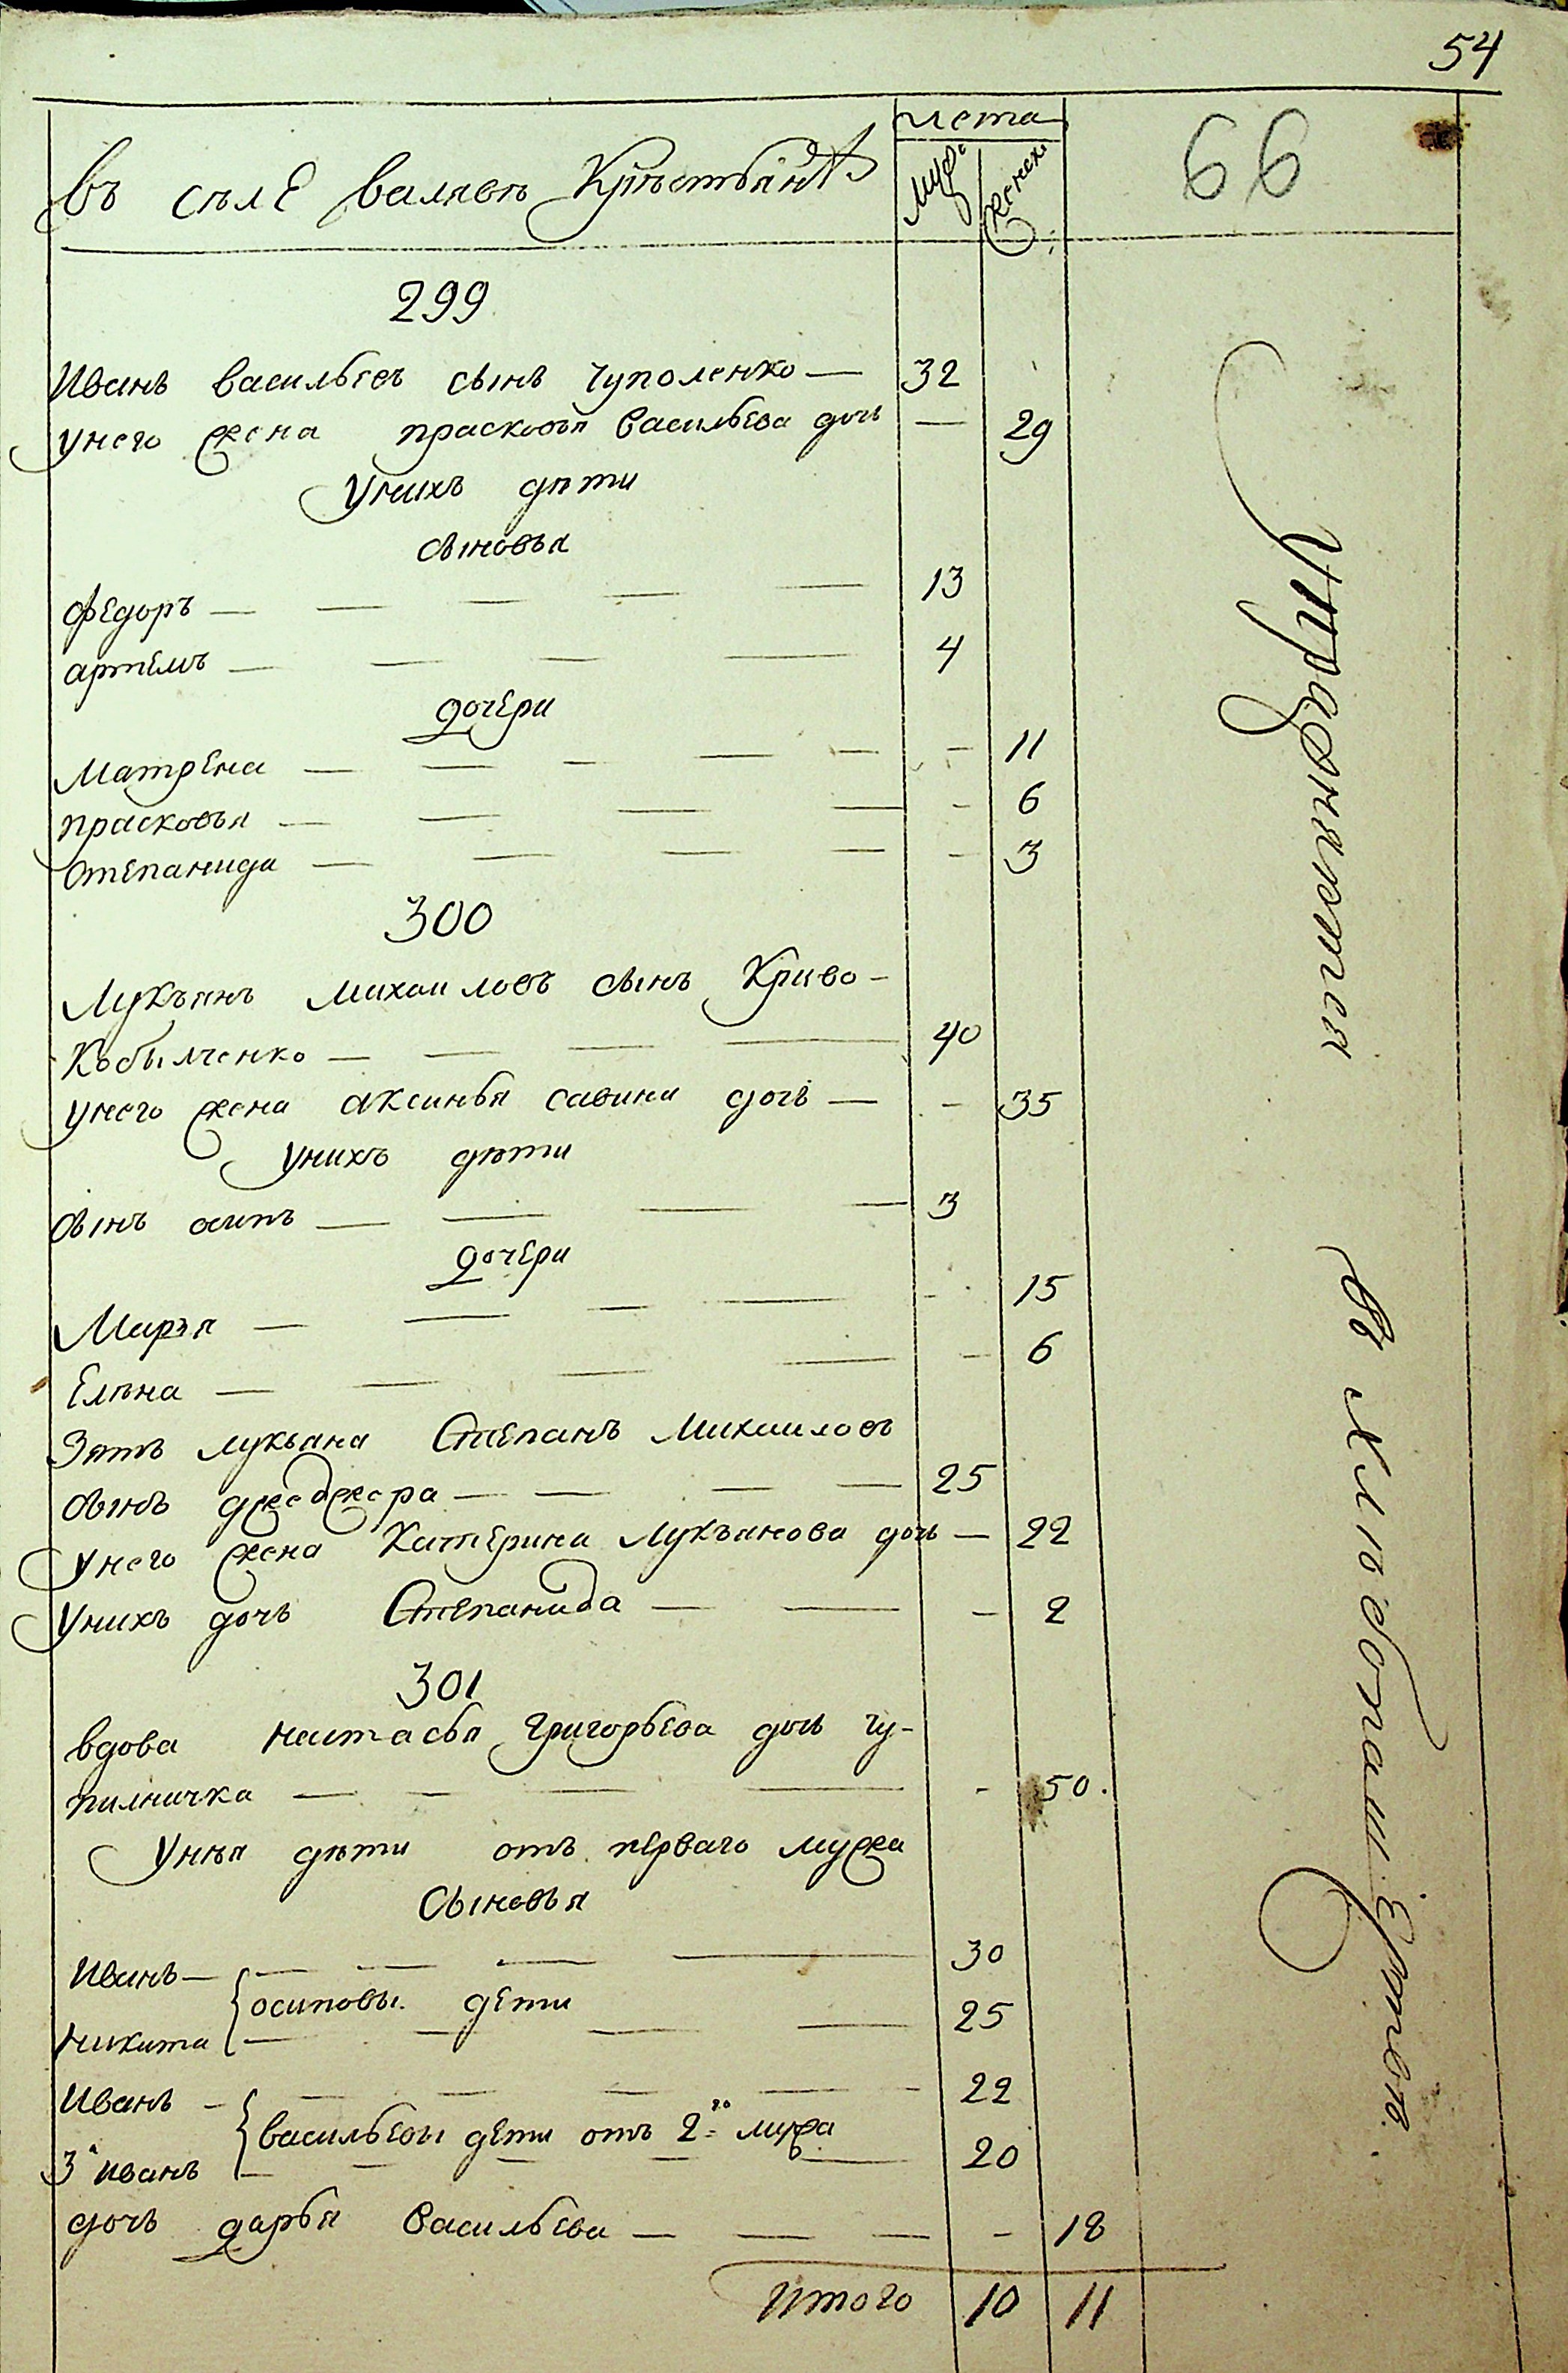 54
66
лета
въ сѣлѣ валковъ Крѣстьянъ
муж: женск:
299
Иванъ васильевъ сынъ Чуполенко — 32
унего жена прасковья васильева дочь — 29
Унихъ дѣти
сыновья
федоръ — 13
артемъ — 4
дочери
Матрена — 11
прасковья — 6
степанида — 3
300
Лукъянъ михаиловъ сынъ Криво-
Кобылченко — 40
унего жена аксинья савина дочь — 35
унихъ дѣти
сынъ осипъ — 3
дочери
Марья — 15
Елѣна — 6
Зять лукьяна Степанъ Михаиловъ
сынъ — 25
унего жена Катерина Лукъянова дочь — 22
Унихъ дочь Степанида — 2
301
вдова настасья Григорьева дочь Чу-
пилничка — 50.
Унея дѣти отъ перваго мужа
Сыновья
Иванъ — 30
осиповы дети
Никита — 25
Иванъ — 22
васильевы дети отъ 2го мужа
3й иванъ — 20
дочь дарья Васильева — 18
итого 10 11